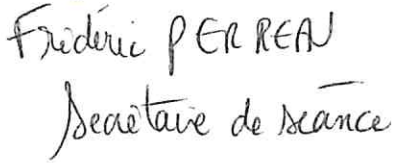 Frédéric PERREAU
Secrétaire de séance